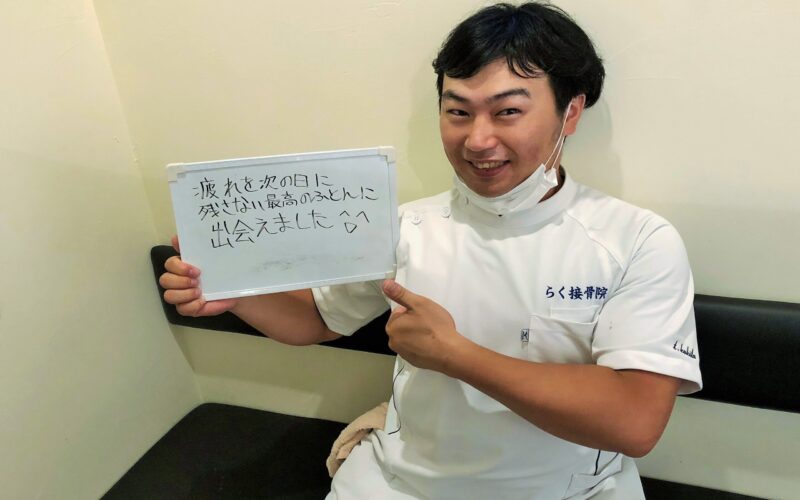 疲れを次の日に
残さない最高のふとんに
出会えました^o^
らく接骨院